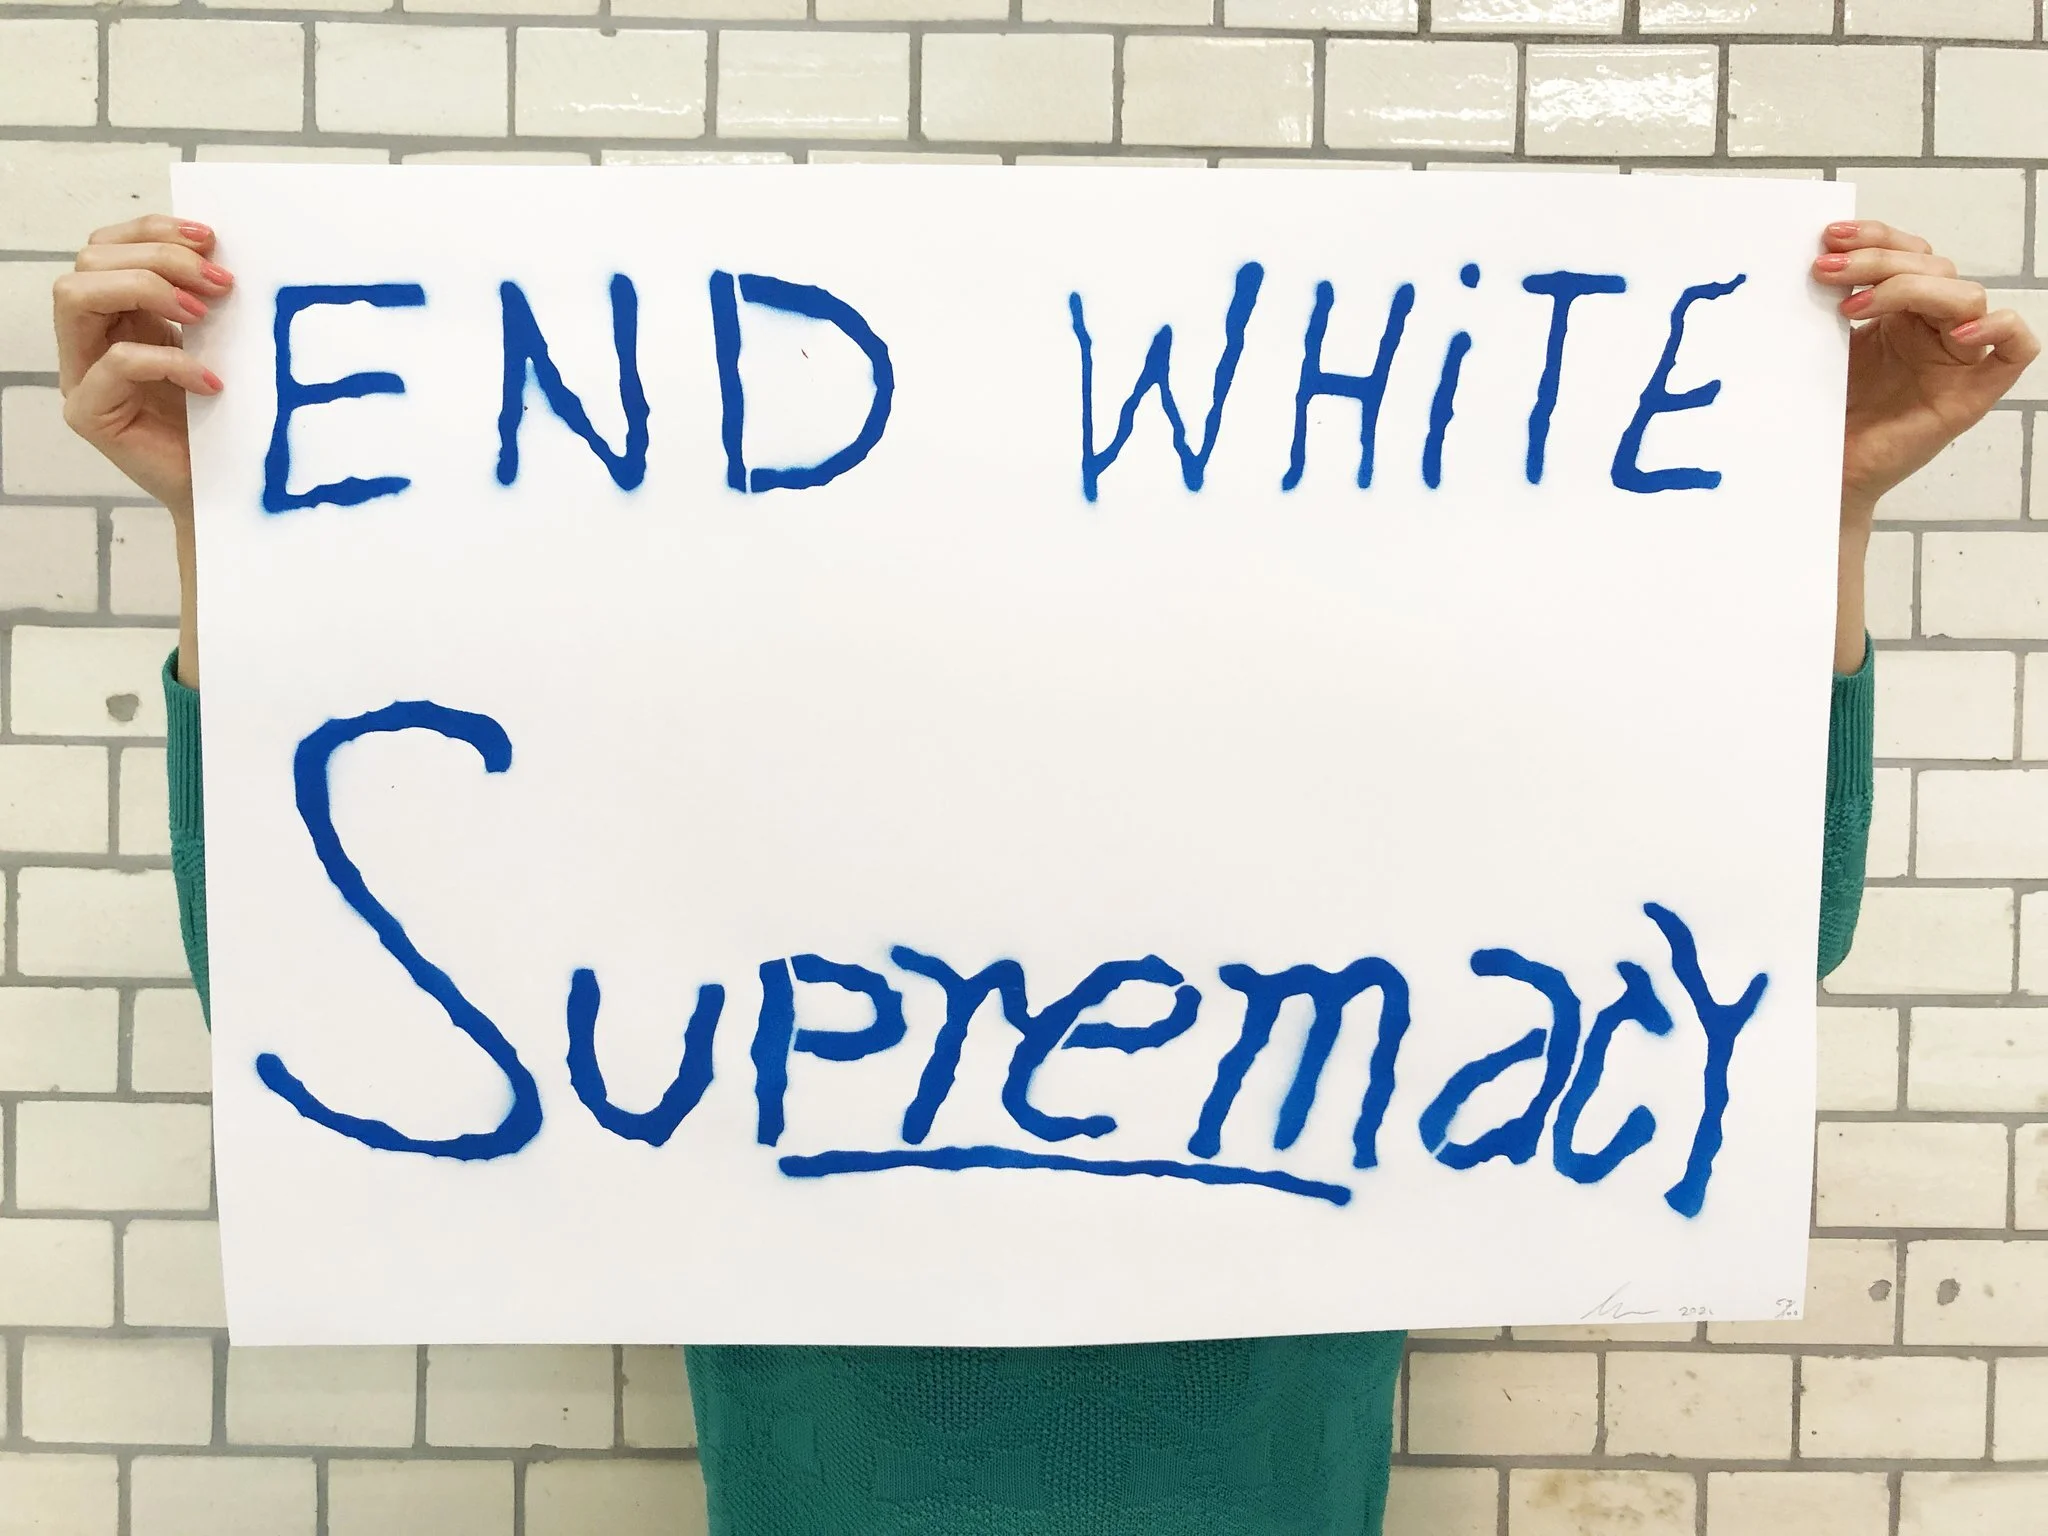 END WHiTE
Supremacy
2021